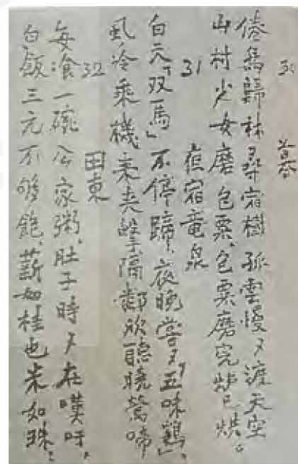 30
倦鳥歸林尋宿樹 孤雲慢々渡天空
山村少女磨包粟、包粟磨完炉已烘。
31
宿竜泉
白天「双馬」不停蹄，夜晚嘗々「五味鷄」，
風冷乘機來夾擊 隔鄰欣聽曉鶯啼
32
田東
每飡一碗公家粥，肚子時々在嘆吁，
白飯三元不够飽，薪如桂也米如珠。